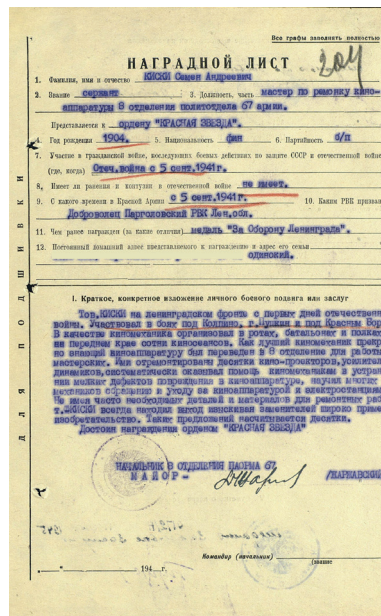 Все графы заполнять полностью
204
НАГРАДНОЙ ЛИСТ
1. Фамилия, имя и отчество КИСКИ Семен Андреевич
2. Звание сержант 3. Должность, часть мастер по ремонту кино-
аппаратуры 8 отделения политотдела 67 армии.
Представляется к ордену "КРАСНАЯ ЗВЕЗДА".
4. Год рождения 1904. 5. Национальность фин 6. Партийность б/п
7. Участие в гражданской войне, последующих боевых действиях по защите СССР и отечественной войне
(где, когда) Отеч.война с 5 сент.1941г.
8. Имеет ли ранения и контузии в отечественной войне не имеет.
9. С какого времени в Красной Армии с 5 сент.1941г. 10. Каким РВК призван
Доброволец Парголовский РВК Лен.обл.
11. Чем ранее награжден (за какие отличия) медаль "За Оборону Ленинграда".
13. Постоянный домашний адрес представляемого к награждению и адрес его семьи
одинокий.
ДЛЯ ПОДШИВКИ
I. Краткое, конкретное изложение личного боевого подвига или заслуг
Тов.КИСКИ на ленинградском фронте с первых дней отечественн
войны. Участвовал в боях под Колпино, г.Пушкин и под Красным Бор
В качестве киномеханика организовал в ротах, батальонах и полках
на переднем крае сотни киносеансов. Как лучший киномеханик прекра
но знающий киноаппаратуру был переведен в 8 отделение для работы
мастерских. Им отремонтированы десятки кино-проекторов, усилител
динамиков, систематически оказывал помощь киномеханикам в устран
нии мелких дефектов повреждений в киноаппаратуре, научил многих
механиков обращению и уходу за киноаппаратурой и электростанция
Не имея часто необходимых деталей и материалов для ремонтных раб
т.КИСКИ всегда находил выход изыскивая заменителей широко приме
изобретательство. Таких предложений насчитывается десятки.
Достоин награждения орденом "КРАСНАЯ ЗВЕЗДА"
НАЧАЛЬНИК 8 ОТДЕЛЕНИЯ ПАОРМА 67
МАЙОР- /ЖАРКОВСКИЙ
Командир (начальник)
(звание
" " 194 г.